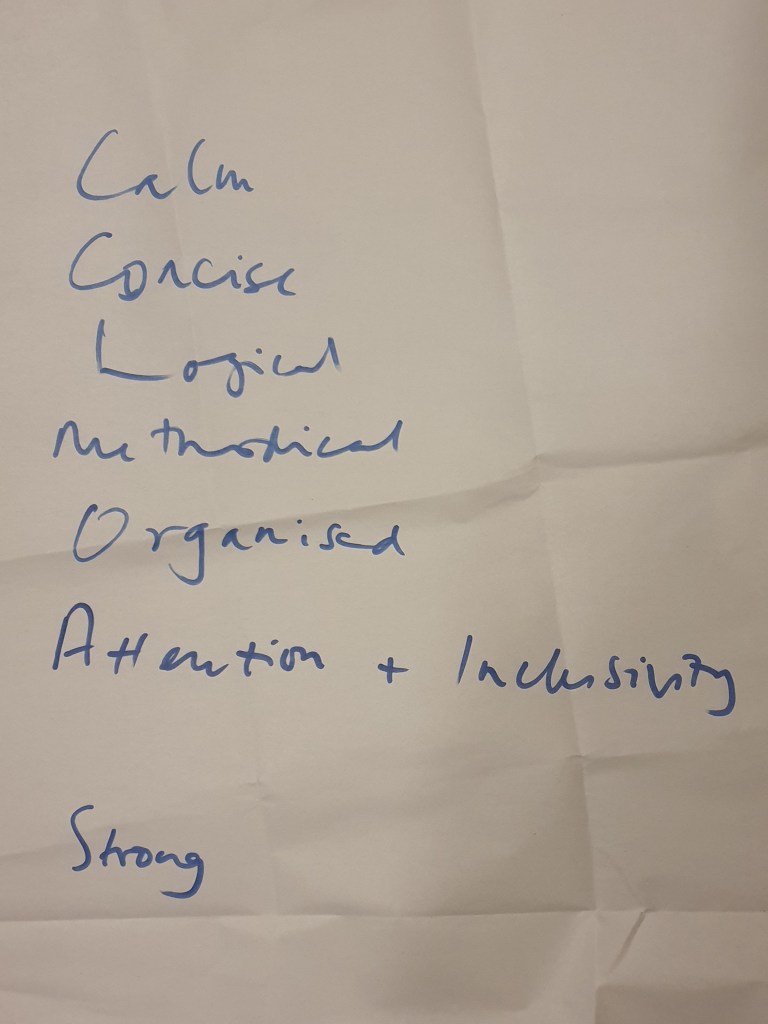 Calm
Concise
Logical
Methodical
Organised
Attention + Inclusivity
Strong